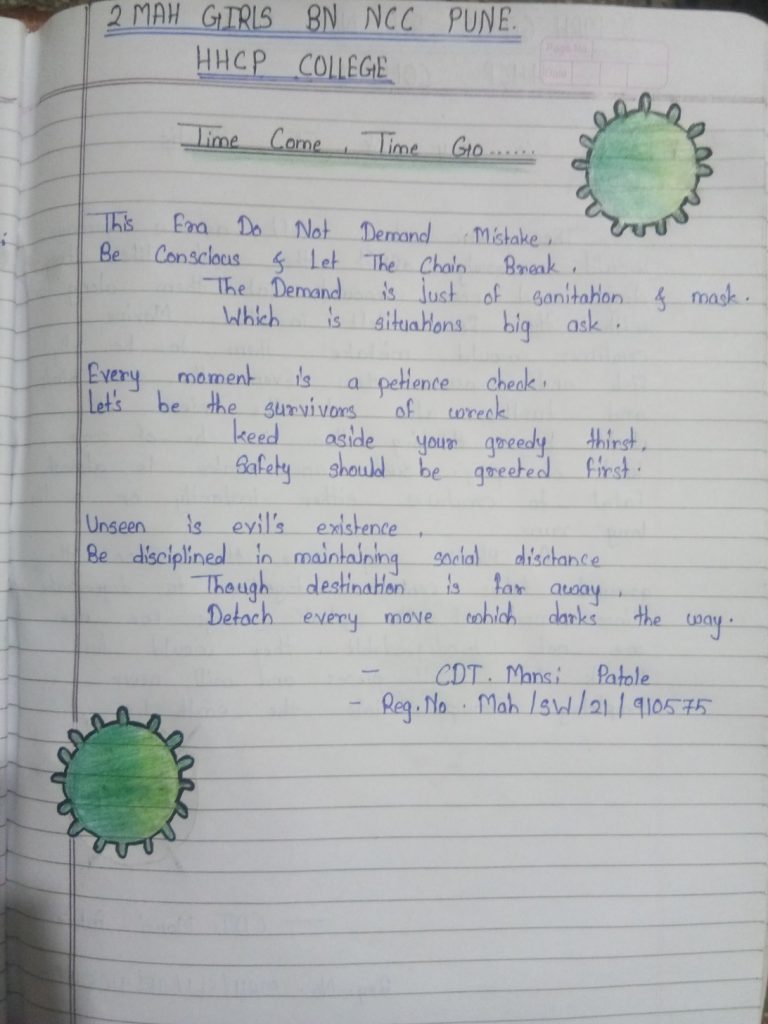 2 MAH GIRLS BN NCC PUNE.
HHCP COLLEGE
Page No.
Date
Time Come, Time Go......
This Era Do Not Demand Mistake,
Be Conscious & Let The Chain Break.
The Demand is just of sanitation & mask.
Which is situations big ask.
Every moment is a petience check.
Let's be the survivors of wreck
keed aside your greedy thirst,
Safety should be greeted first.
Unseen is evil's existence,
Be disciplined in maintaining social disctance
Though destination is far away,
Detach every move which darks the way.
- CDT. Mansi Patole
- Reg. No. Mah/SW/21/910575